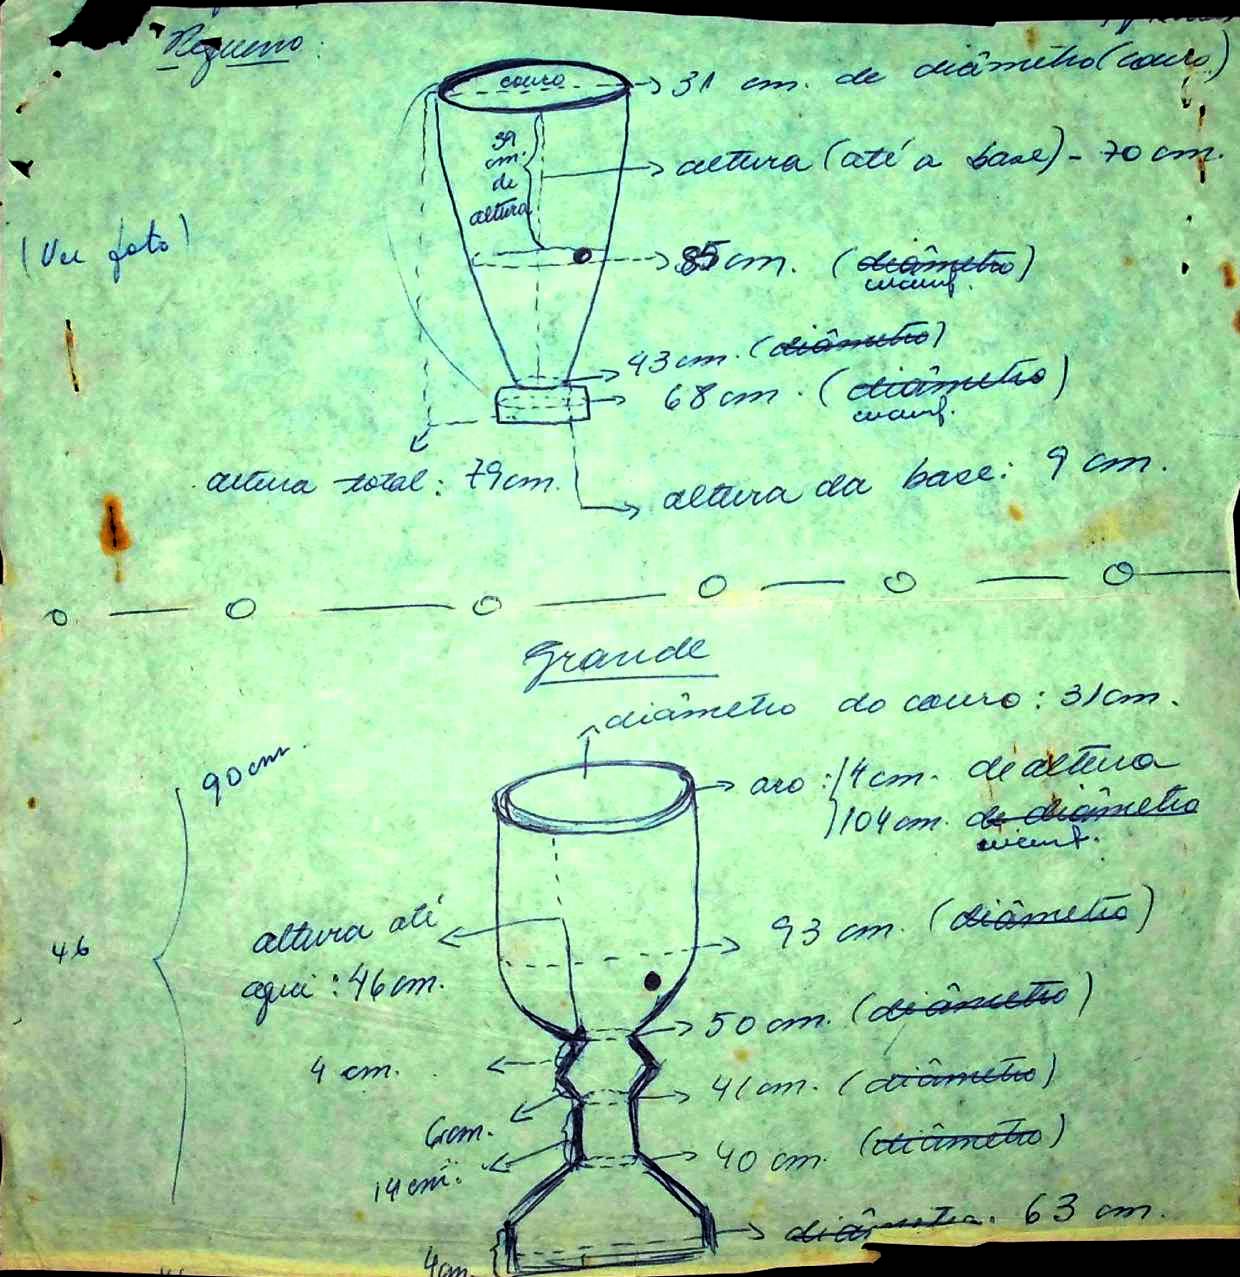 Pequeno:
couro
31 cm. de diâmetro (couro)
39
cm.
de
altura
altura (até a base) - 70 cm.
(Ver foto)
85 cm. (diâmetro)
circunf.
43 cm. (diâmetro)
68 cm. (diâmetro)
circunf.
altura total: 79 cm.
altura da base: 9 cm.
Grande
diâmetro do couro: 31 cm.
90 cm.
aro: 4 cm. de altura
104 cm. de diâmetro
circunf.
46
altura até
aqui: 46 cm.
93 cm. (diâmetro)
50 cm. (diâmetro)
4 cm.
41 cm. (diâmetro)
6 cm.
40 cm. (diâmetro)
14 cm.
diâmetro. 63 cm.
4 cm.